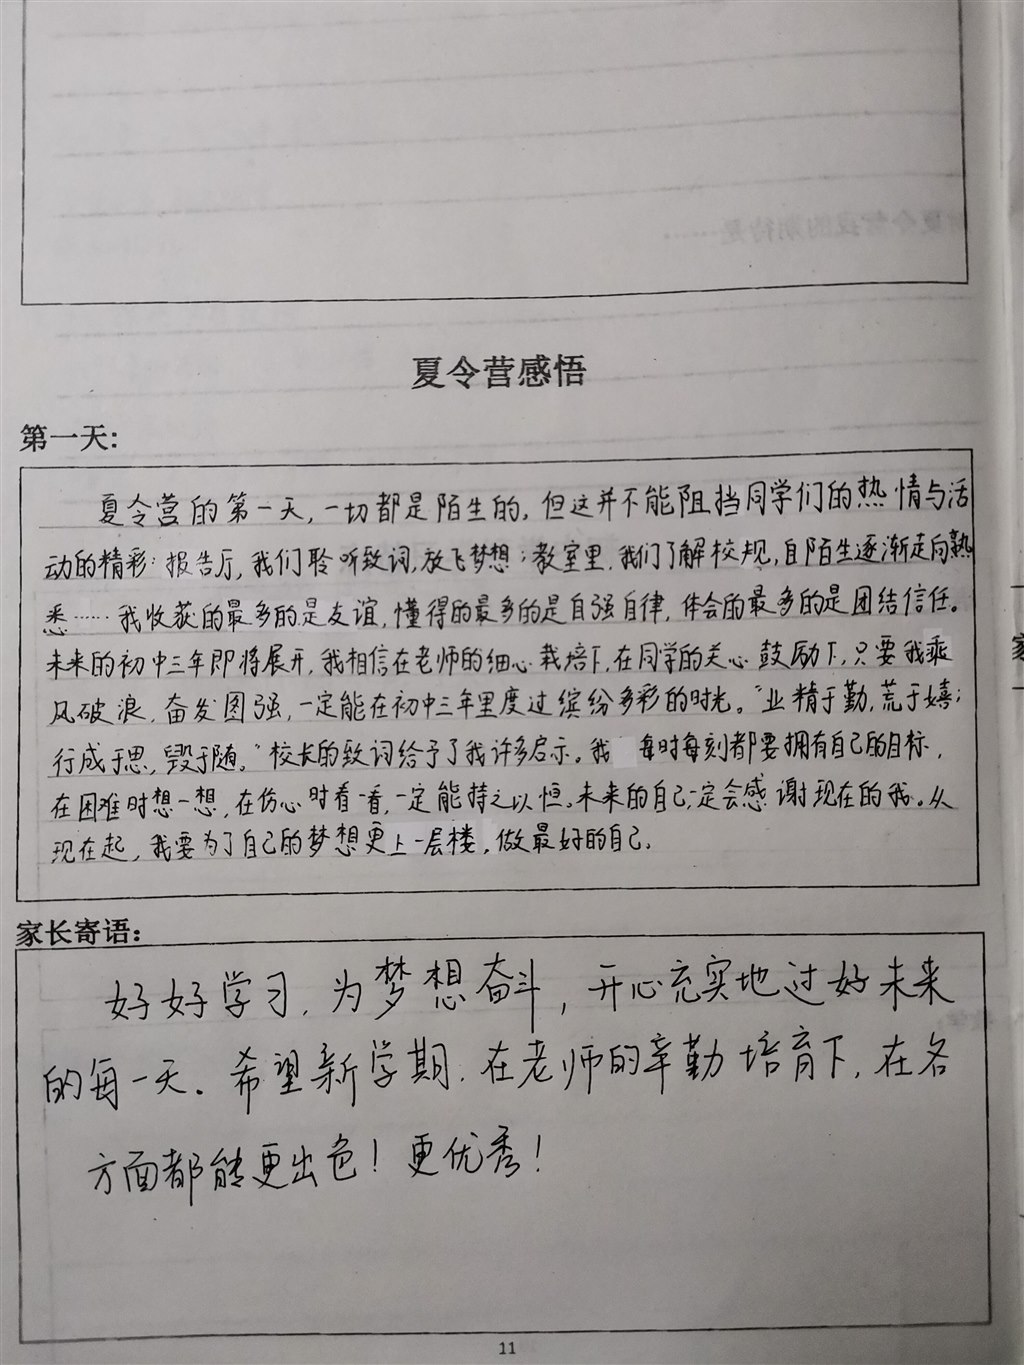 夏令营感悟
第一天:
夏令营的第一天,一切都是陌生的,但这并不能阻挡同学们的热情与活
动的精彩:报告厅,我们聆听致词,放飞梦想;教室里,我们了解校规,自陌生逐渐走向熟
悉……我收获的最多的是友谊,懂得的最多的是自强自律,体会的最多的是团结信任。
未来的初中三年即将展开,我相信在老师的细心栽培下,在同学的关心鼓励下,只要我乘
风破浪,奋发图强,一定能在初中三年里度过缤纷多彩的时光。“业精于勤,荒于嬉;
行成于思,毁于随。”校长的致词给予了我许多启示。我 每时每刻都要拥有自己的目标,
在困难时想一想,在伤心时看一看,一定能持之以恒。未来的自己一定会感谢现在的我。从
现在起,我要为了自己的梦想更上一层楼,做最好的自己。
家长寄语:
好好学习,为梦想奋斗,开心充实地过好未来
的每一天。希望新学期,在老师的辛勤培育下,在各
方面都能更出色!更优秀!
11